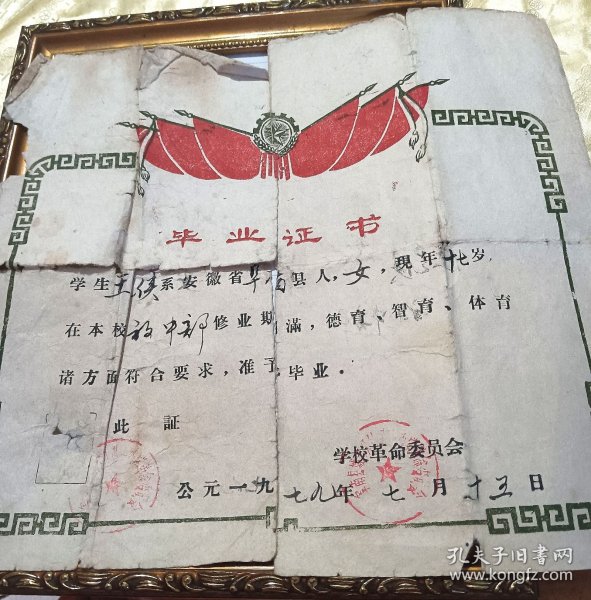 毕业证书
学生王侠系安徽省阜南县人，女，现年十七岁，
在本校初中部修业期满，德育、智育、体育
诸方面符合要求，准予毕业。
此 証
学校革命委员会
公元一九七九年七月十五日
孔夫子旧书网
www.kongfz.com